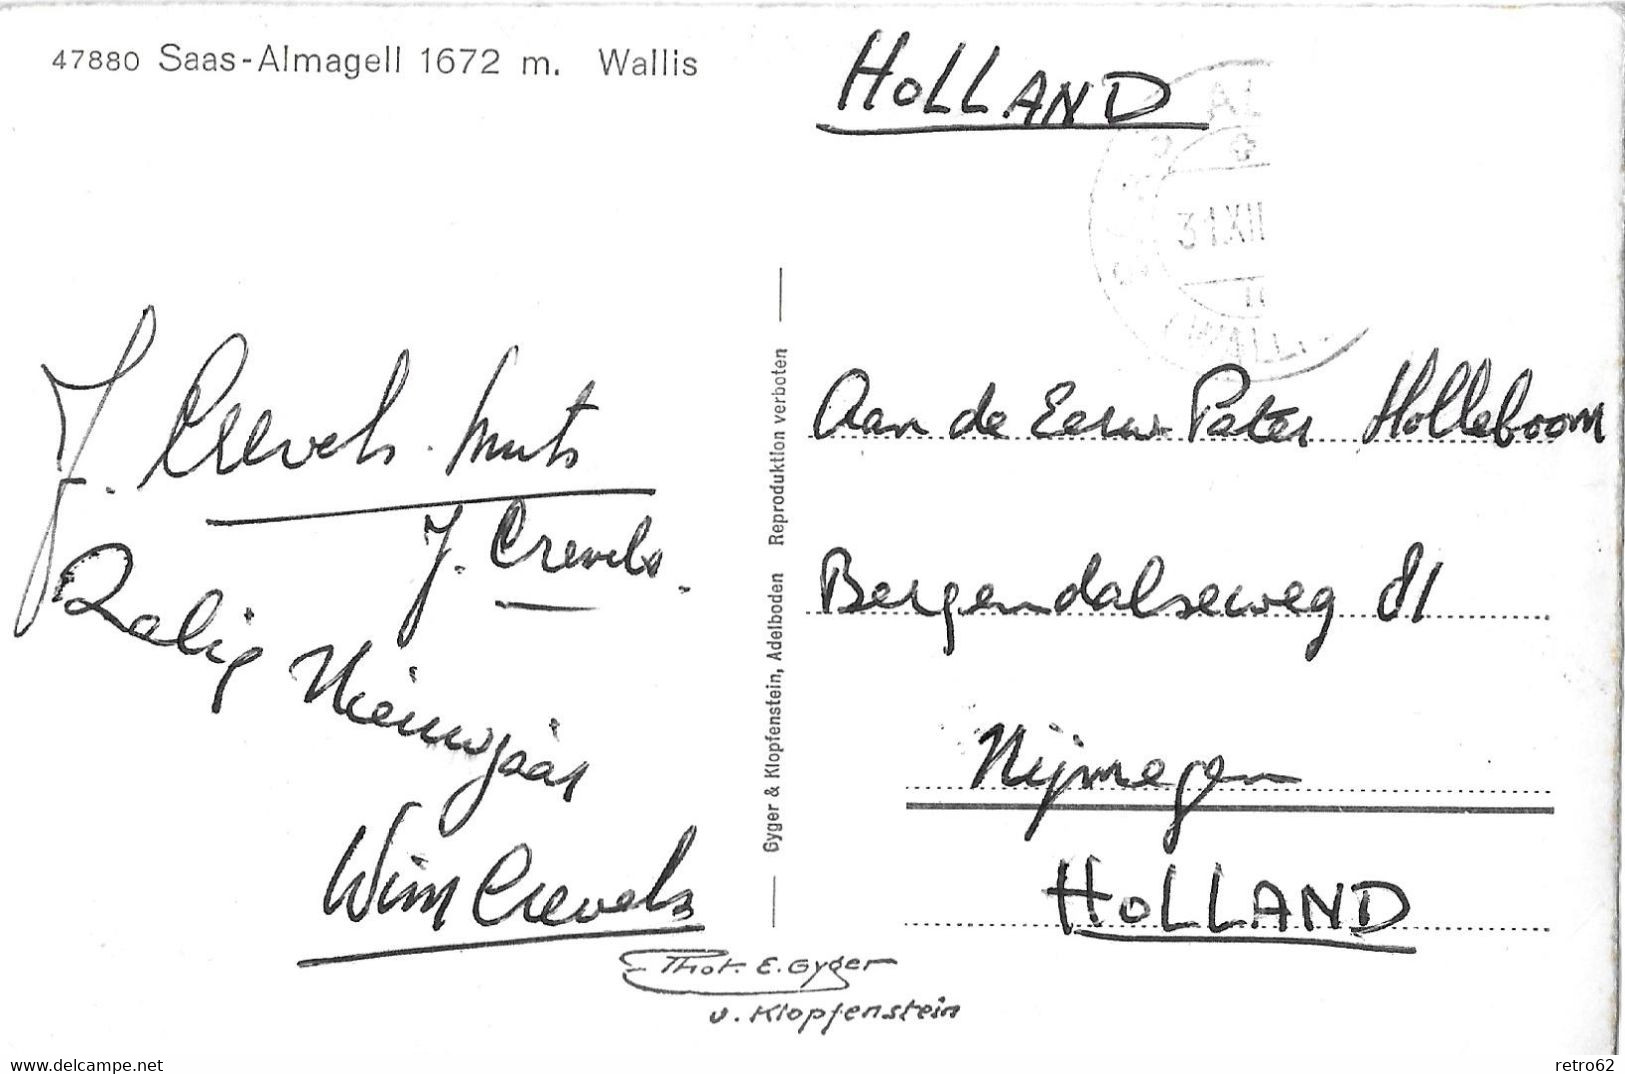 47880 Saas-Almagell 1672 m. Wallis
HOLLAND
31.XII
J. Crevels-Smits
J. Crevels.
Zalig Nieuwjaar
Wim Crevels
Gyger & Klopfenstein, Adelboden Reproduktion verboten
Aan de Eerw Pater Holleboom
Bergendalseweg 81
Nijmegen
HOLLAND
Phot. E. Gyger
u. Klopfenstein
delcampe.net
retro62